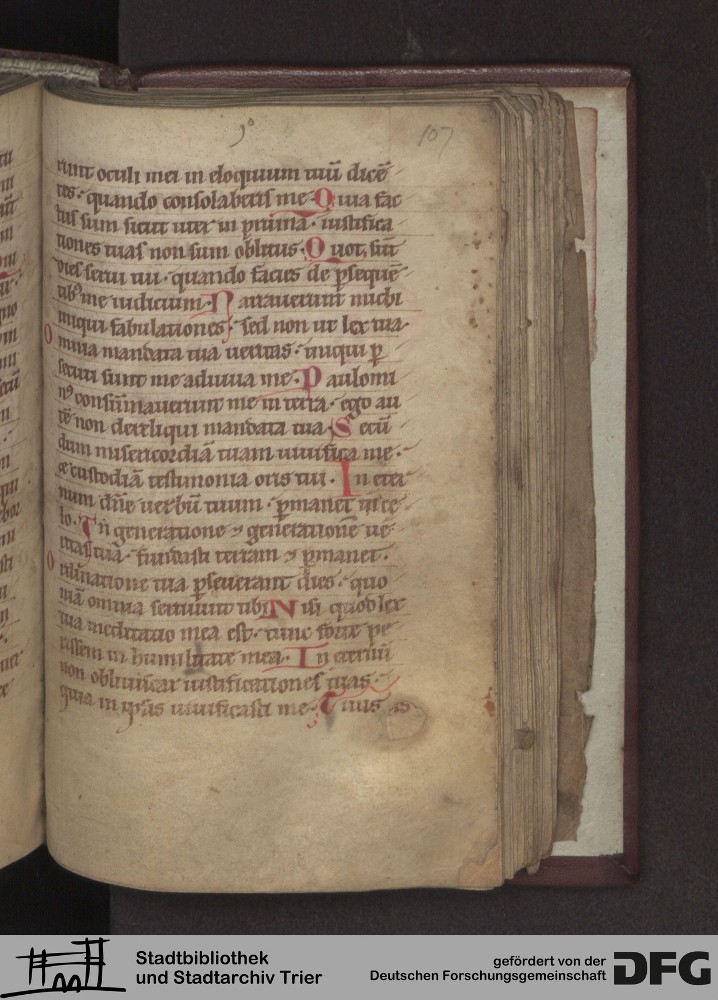 107
runt oculi mei in eloquium tuū dicē
tes · quando consolaberis me · Quia fac
tus sum sicut uter in pruina · iustifica
tiones tuas non sum oblitus · Quot sūt
dies serui tui · quando facies de ꝑsequē
tibꝰ me iudicium · Narrauerunt michi
iniqui fabulationes · sed non ut lex tua ·
Omnia mandata tua ueritas · iniqui ꝑ
secuti sunt me adiuua me · Paulomi
nꝰ consūmauerunt me in terra · ego au
tē non dereliqui mandata tua · Secū
dum misericordiā tuam uiuifica me ·
et custodiā testimonia oris tui · In eter
num dn̄e uerbū tuum · ꝑmanet in ce
lo · In generatione ⁊ generationē ue
ritas tua · fundasti terram ⁊ ꝑmanet ·
Ordinatione tua ꝑseuerant dies · quo
niā omnia seruiunt tibi Nisi quod lex
tua meditatio mea est · tunc forte pe
rissem in humilitate mea · In eternū
non obliuiscar iustificationes tuas ·
quia in ip̄sis uiuificasti me · Tuus
Stadtbibliothek
und Stadtarchiv Trier
gefördert von der
Deutschen Forschungsgemeinschaft
DFG